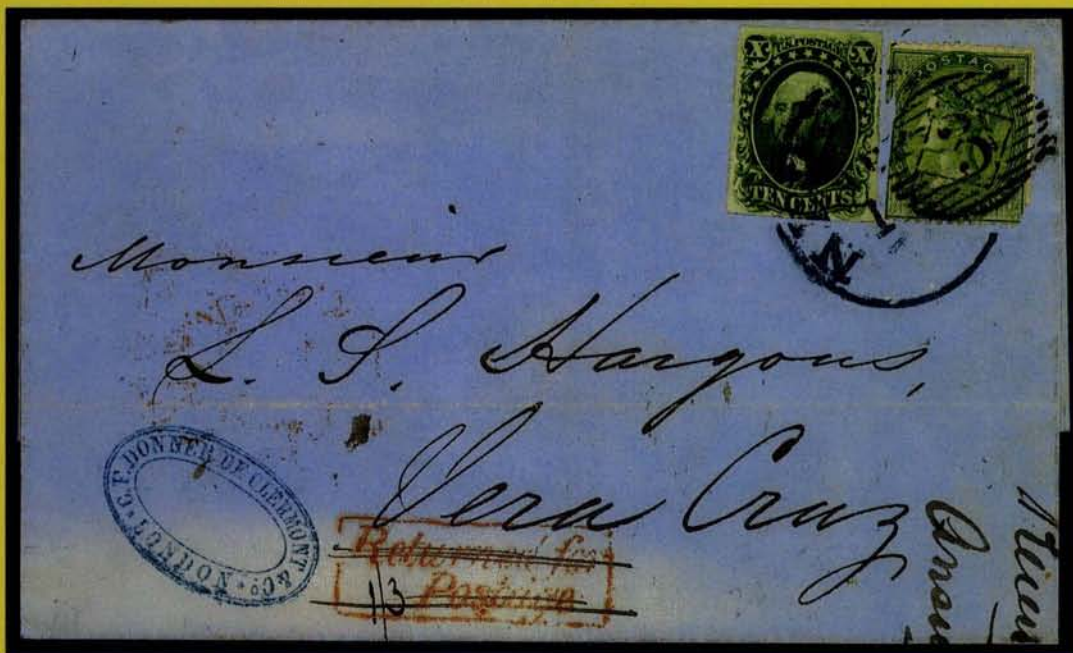 X U.S. POSTAGE X
TEN CENTS
POSTAGE
Monsieur
L. S. Hargous,
Vera Cruz
C. F. DONNER DE CLERMONT & Co.
Returned for
Postage
1/3